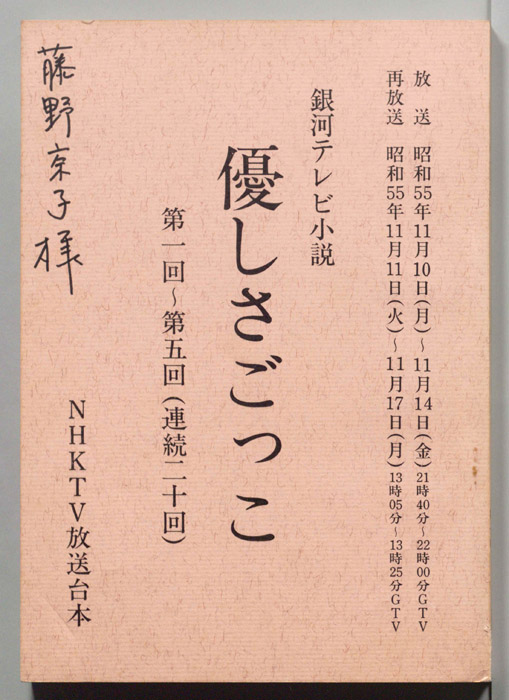 放送 昭和55年11月10日(月)～11月14日(金)21時40分～22時00分GTV
再放送 昭和55年11月11日(火)～11月17日(月)13時05分～13時25分GTV
銀河テレビ小説
優しさごっこ
第一回～第五回(連続二十回)
NHKTV放送台本
藤野京子様